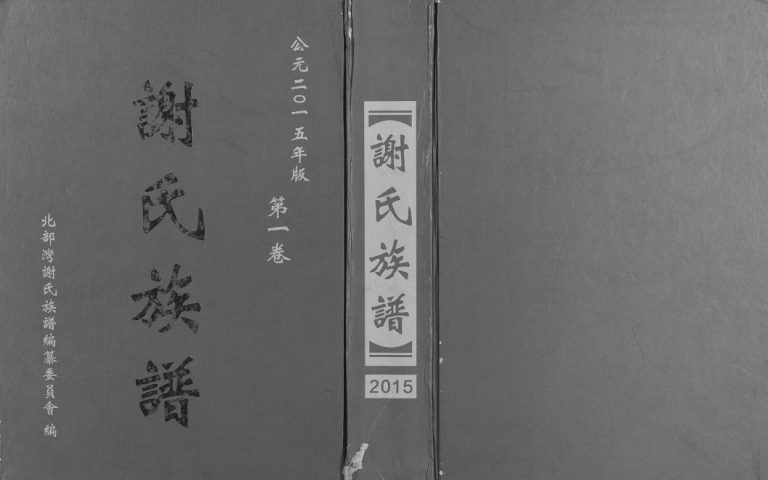 公元二〇一五年版
第一卷
謝氏族譜
北部灣謝氏族譜編纂委員會 編
謝氏族譜
2015